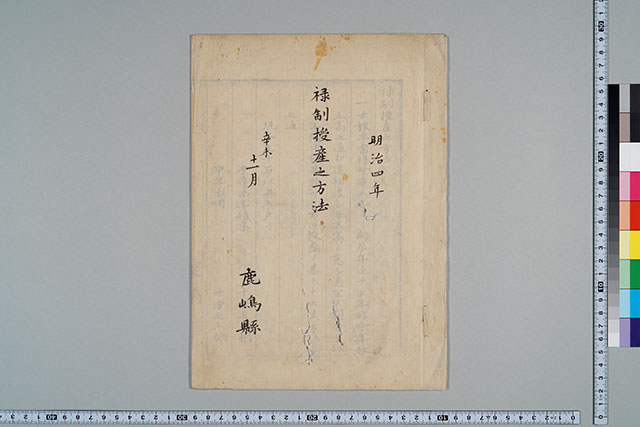 明治四年
禄制授産之方法
辛未
十一月
鹿嶋縣